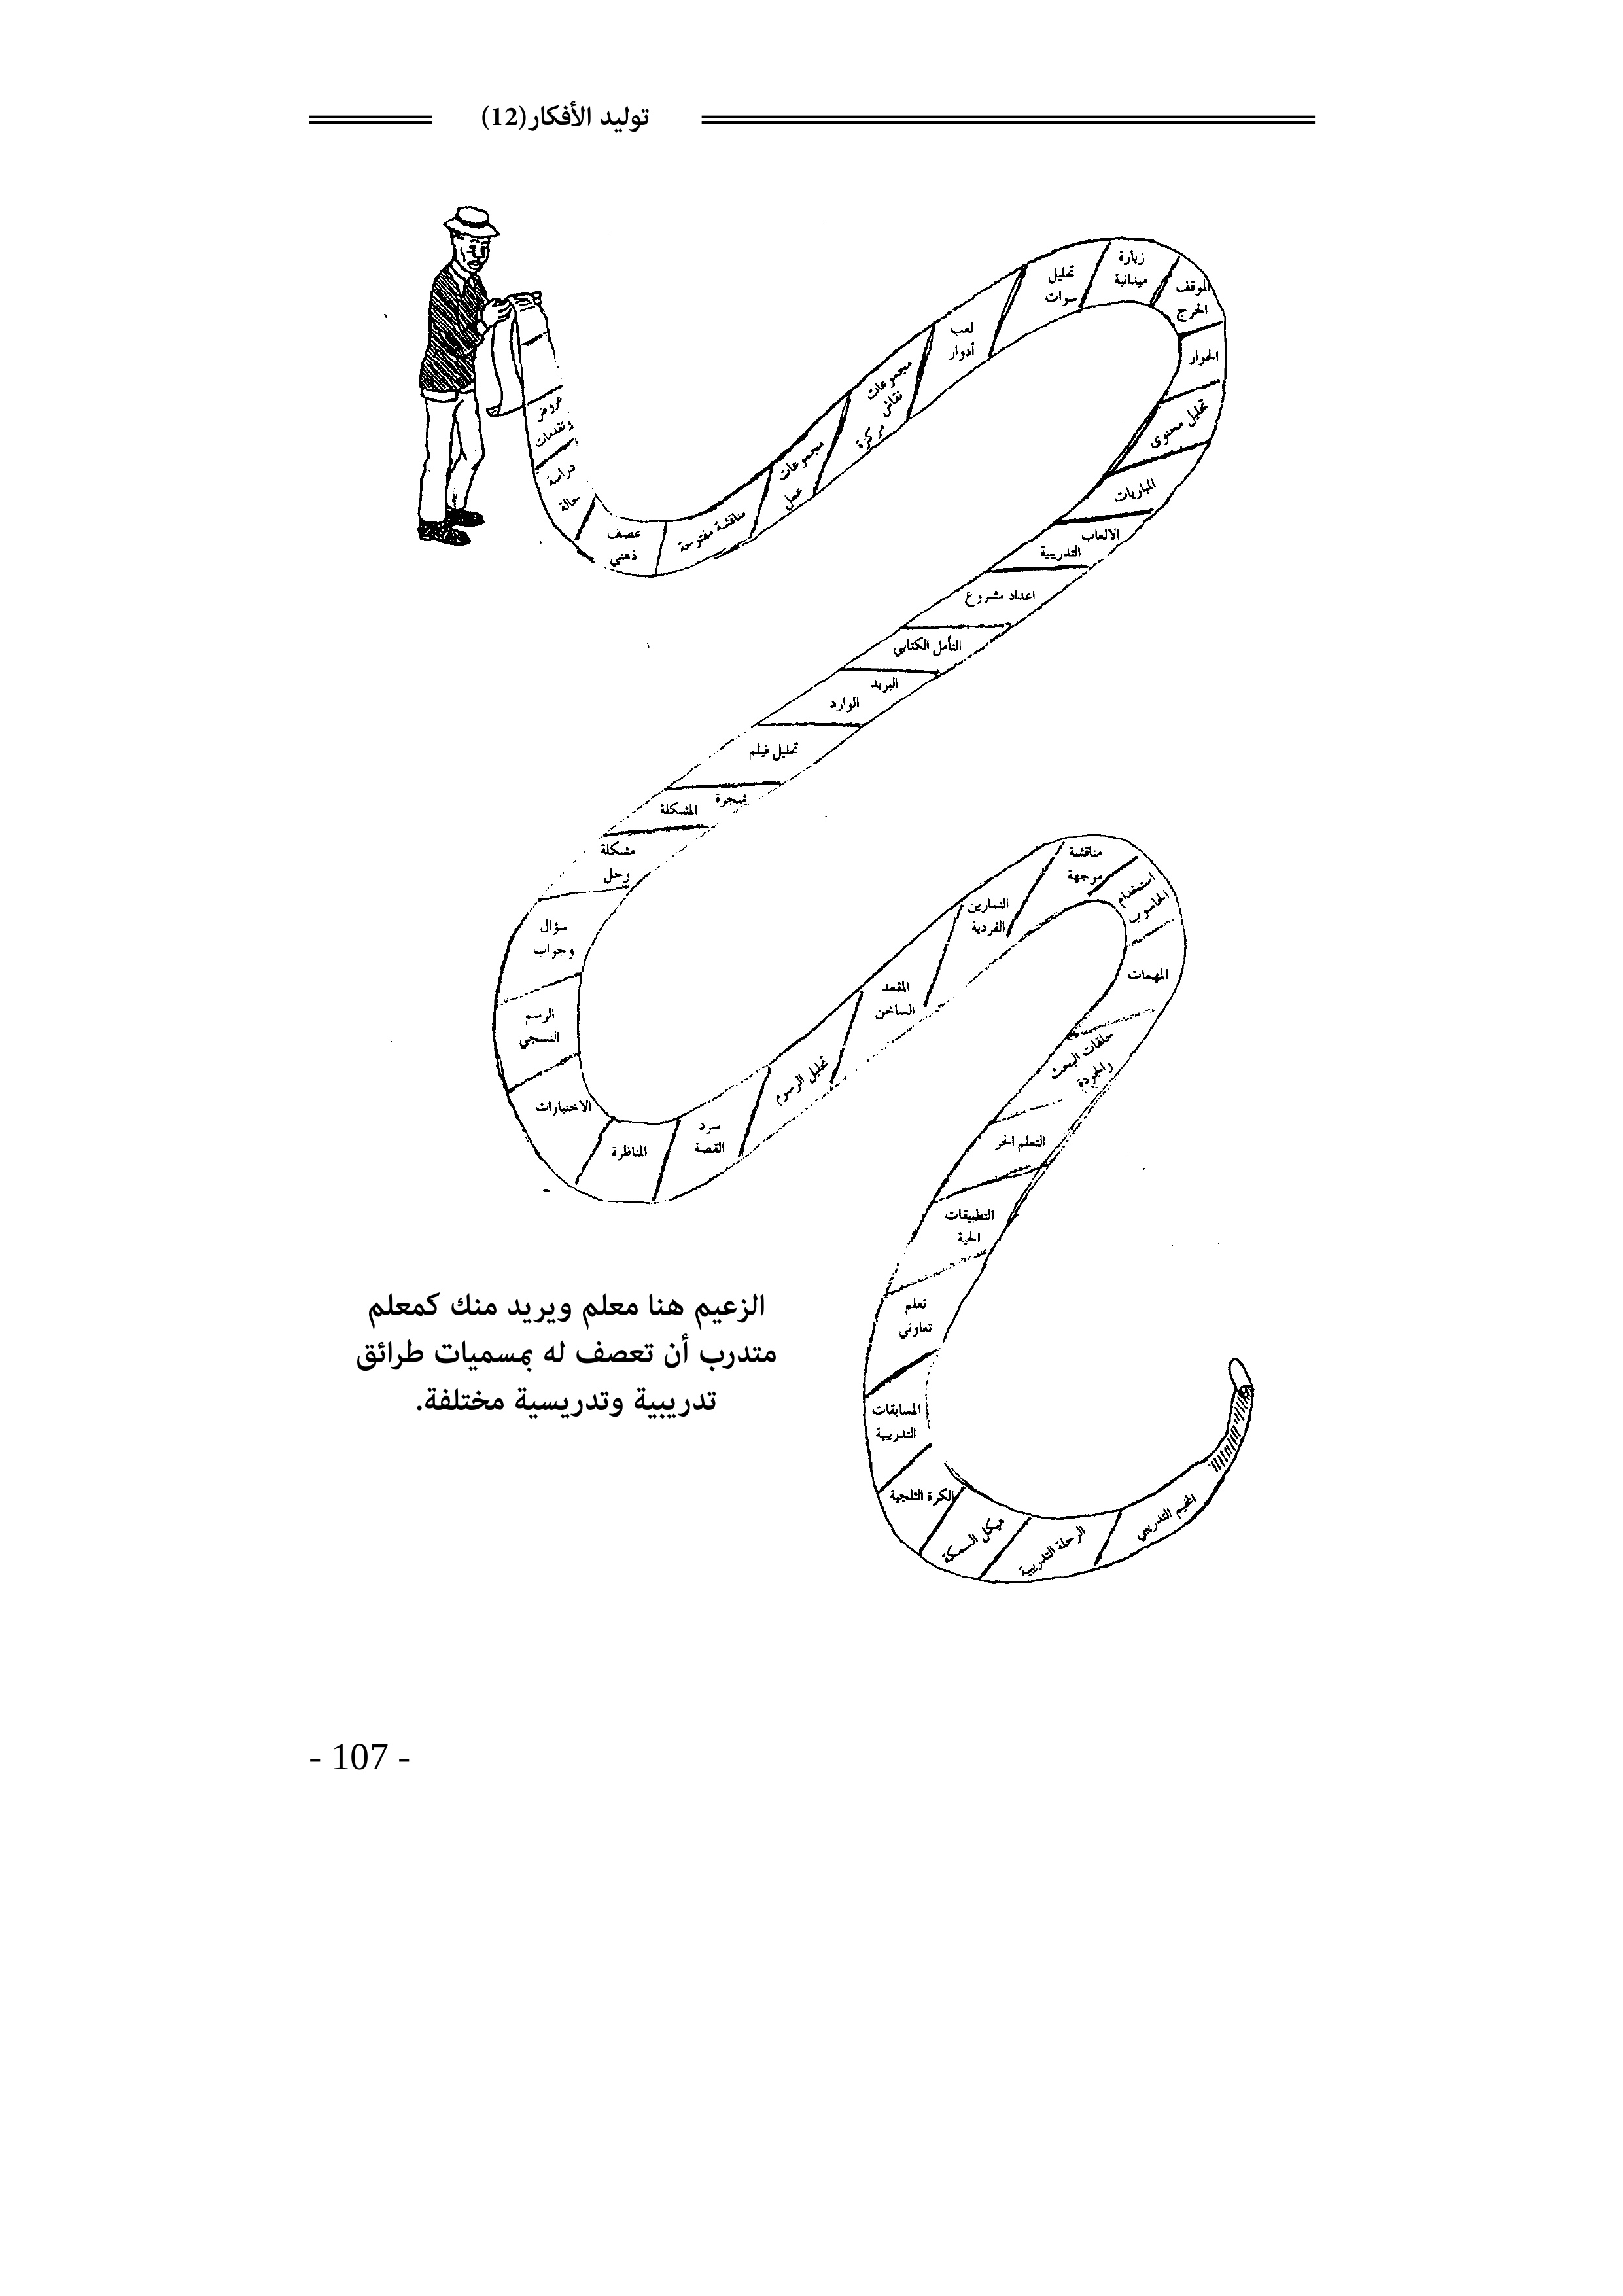 توليد الأفكار(12)
عروض
وتقدمات
دراسة
حالة
عصف
ذهني
مناقشة مفتوحة
مجموعات
عمل
مجموعات
نقاش
مركزة
لعب
أدوار
تحليل
سوات
زيارة
ميدانية
الموقف
الحرج
الحوار
تحليل محتوى
المباريات
الالعاب
التدريبية
اعداد مشروع
التأمل الكتابي
البريد
الوارد
تحليل فيلم
المشكلة
مشكلة
وحل
سؤال
وجواب
الرسم
النسجي
الاختبارات
المناظرة
سرد
القصة
تحليل الرسوم
المقعد
الساخن
التمارين
الفردية
مناقشة
موجهة
استخدام
الحاسوب
المهمات
حلقات البحث
والجودة
التعلم الحر
التطبيقات
الحية
تعلم
تعاوني
المسابقات
التدريبية
الكرة الثلجية
هيكل السمكة
الرحلة التدريبية
المخيم التدريبي
الزعيم هنا معلم ويريد منك كمعلم
متدرب أن تعصف له بمسميات طرائق
تدريبية وتدريسية مختلفة.
- 107 -